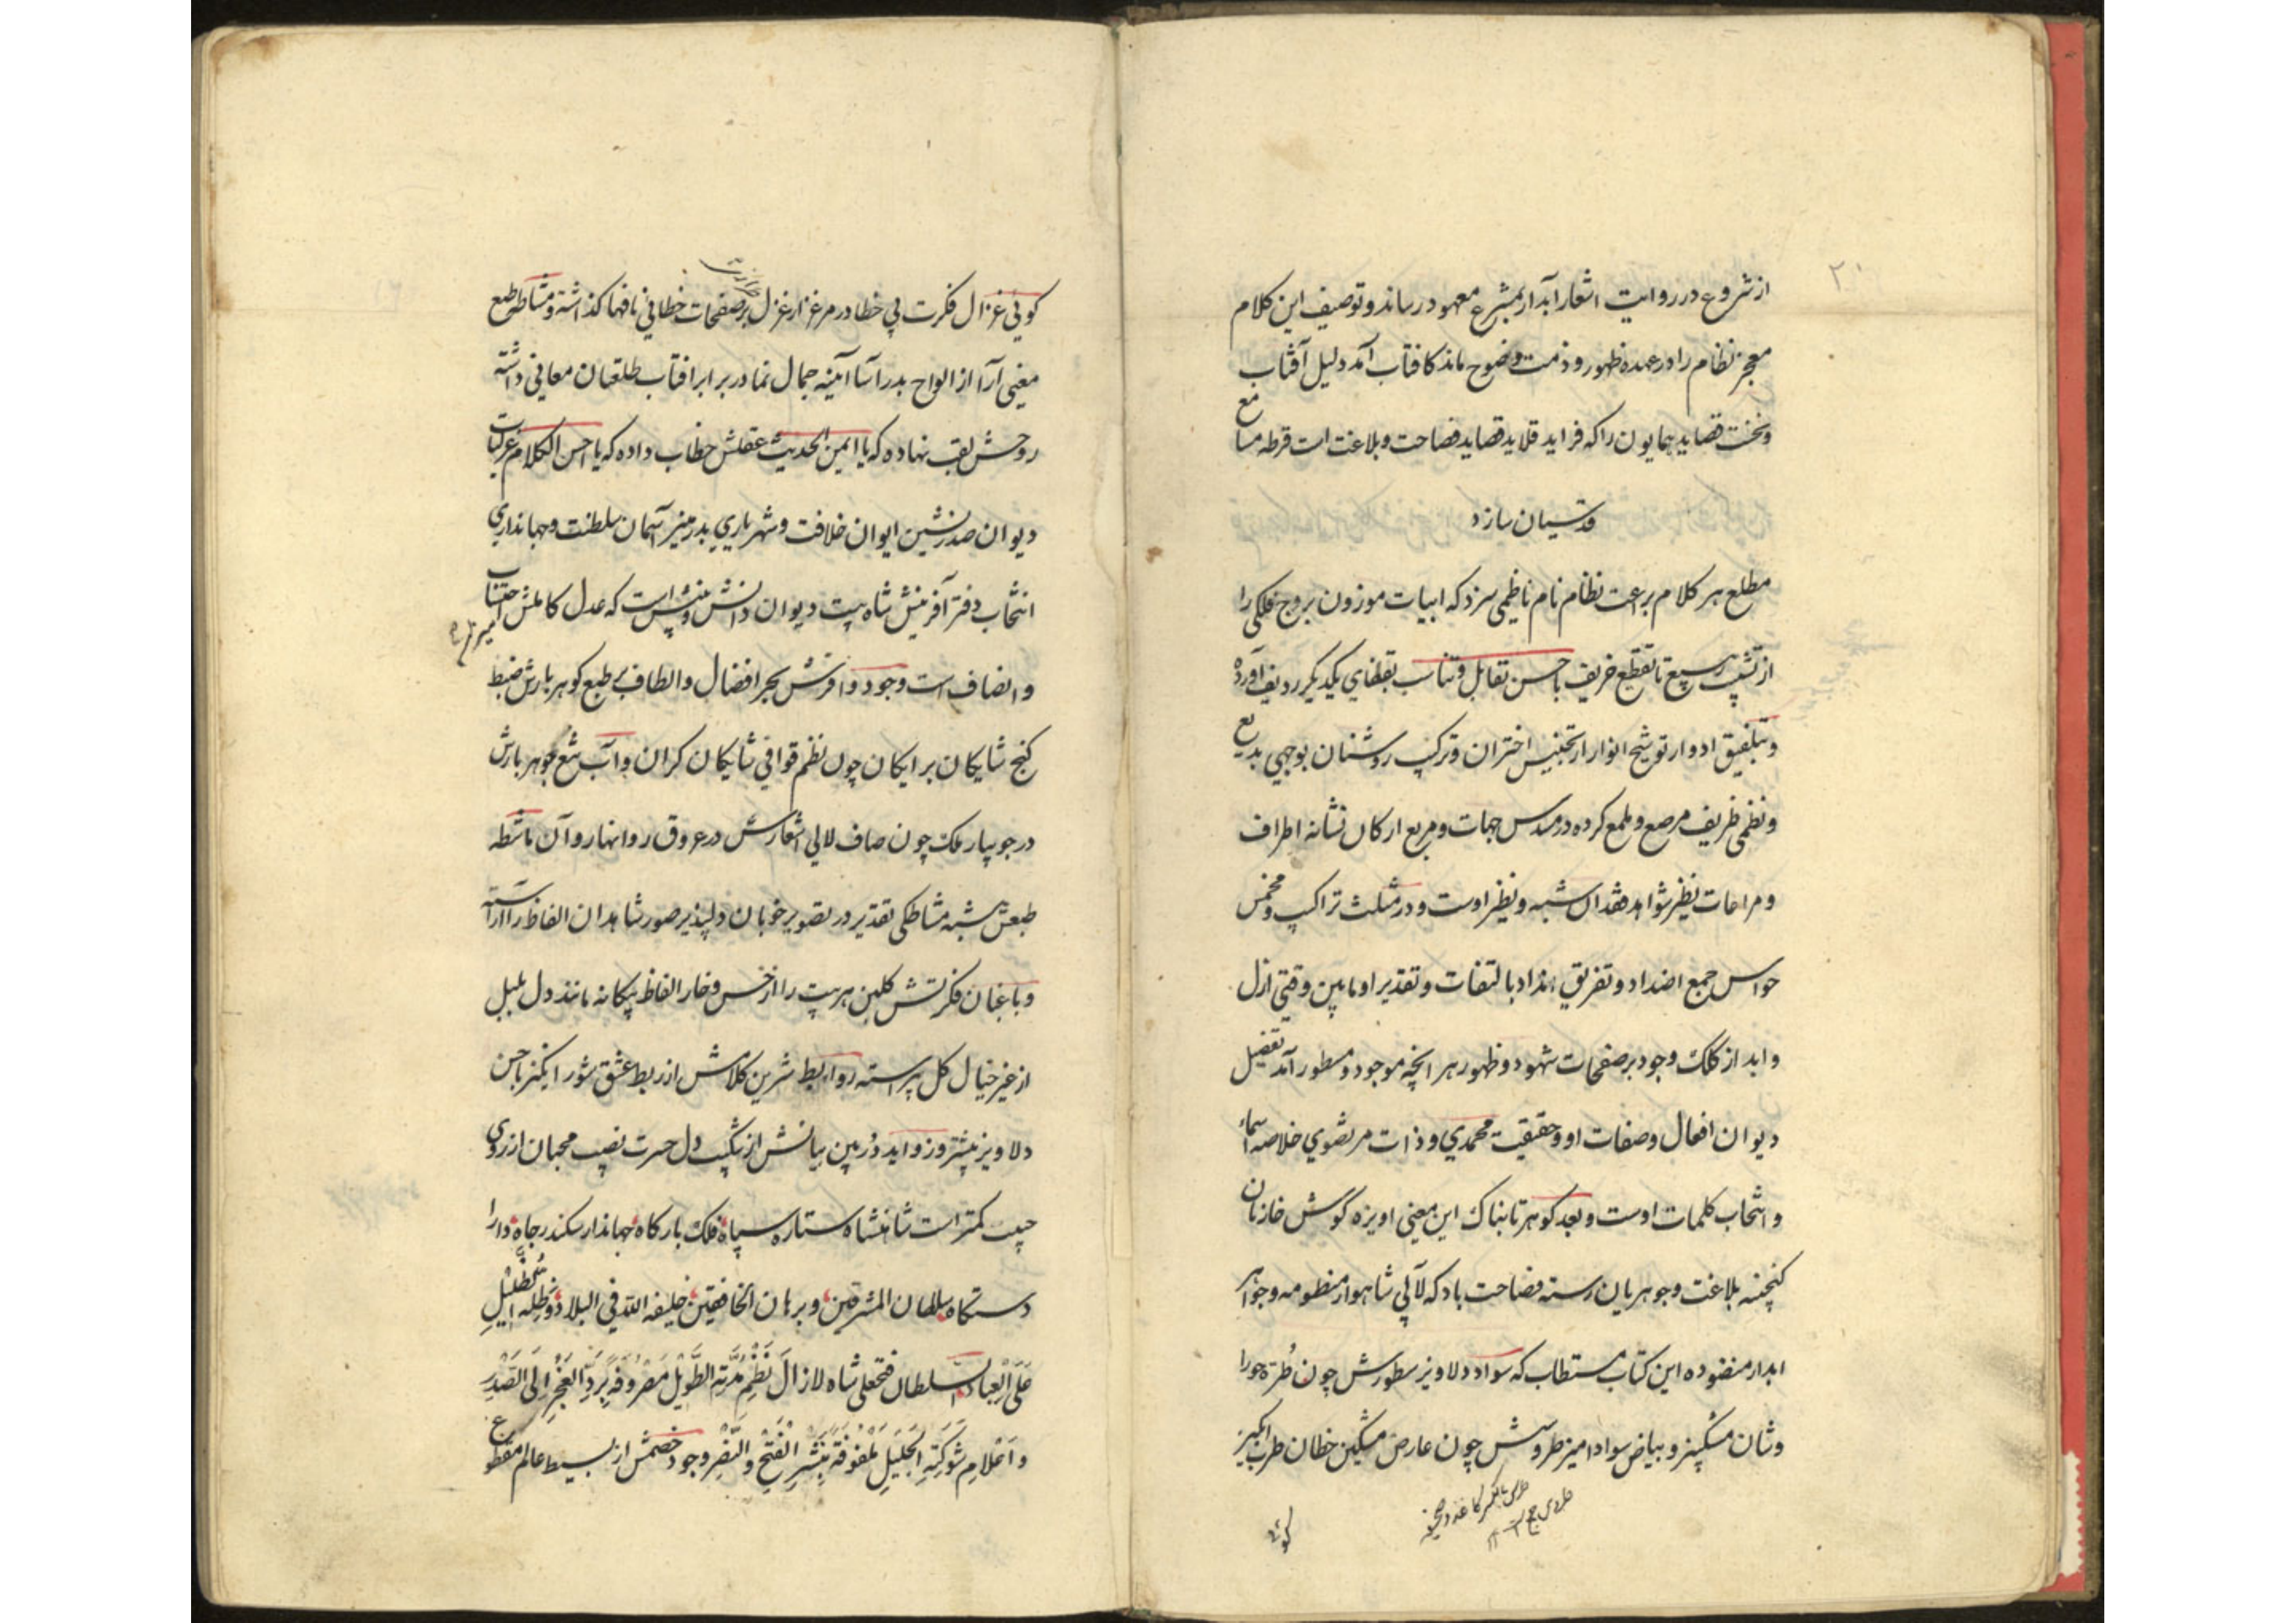 ۲۰
از شروع در روایت اشعار آبدار بمشرع معهود رساند و توصیف این کلام
معجز نظام را در عهده ظهور و ذمت وضوح ماند کافتاب آمد دلیل آفتاب
و نخست قصاید همایون را که فراید قلاید قصاید فصاحت و بلاغت است قرطه مسامع
قدسیان سازد
مطلع هر کلام براعت نظام نام ناظمی سزد که ابیات موزون بروج فلکی را
از تشبیب ربیع تا تقطیع خریف باحسن تقابل و تناسب بقفای یکدیگر ردیف آورده
و بتلفیق ادوار توشیح انوار از تجنیس اختران و ترکیب روشنان بوجهی بدیع
و نظمی ظریف مرصع و ملمع کرده در مسدس جهات و مربع ارکان نشانه اطراف
و مراعات نظیر شواهد فقدان شبه و نظیر اوست و در مثلث تراکیب و مخمس
حواس جمع اضداد و تفریق انداد بالتفات و تقدیر او مابین وقتی ازل
و ابد از کلک وجود بر صفحات شهود و ظهور هر انچه موجود و مسطور آمد تفضیل
دیوان افعال و صفات او و حقیقت محمدي و ذات مرتضوي خلاصه اسماء
و انتخاب کلمات اوست و بعد کوهر تابناک این معنی اویزه گوش خازنان
کنجینه بلاغت و جوهریان رسته فصاحت باد که لآلي شاهوار منظومه و جواهر
ابدار منضوده این کتاب مستطاب که سواد دلاویز سطورش چون طُرّه حورا
وشان مشکبیز و بیاض سواد امیز طروسش چون عارض مشکین خطان طرب انکیز
طروس جمع
طرس بالکسر کاغذ و صحیفه
کوئی
کوئی غزال فکرت پي خطا در مرغزار غزل بر صفحات خطائي نافها کذاشته و مشاطه طبع
معنی آرا از الواح بدر آسا آینه جمال نما در برابر افتاب طلعتان معانی داشته
روحش لقب نهاده که یا ایمن الحدیث عقلش خطاب داده که یا احسن الکلام غرکتاب
دیوان صدرنشین ایوان خلافت و شهریاري بدر منیر آسمان سلطنت و جهانداري
انتخاب دفتر آفرینش شاه بیت دیوان دانش و بینش است که عدل کاملش احتساب
و انصاف است وجود وافرش بحر افضال و الطاف بر طبع کوهربارش ضبط
کنج شایکان بر ایکان چون نظم قوافي شایکان کران و آب تیغ جوهر بارش
در جویبار ملک چون صاف لالي اشعارش در عروق روانها روان ماشطه
طبعش شبه مشاطکی تقدیر در تصویر خوبان دلپذیر صور شاهدان الفاظ را آراسته
و باغبان فکرتش کلبن هر بیت را از خس و خار الفاظ بیکانه مانند دل بلبل
از غیر خیال کل پیراسته روابط شرین کلامش از ربط عشق شور انکیز با حسن
دلاویز بیشتر و زواید دُر بین بیانش از شکیب دل حسرت نصیب محبان از روي
حبیب کمتر است شاهنشاه ستاره سپاه فلک بارکاه جهاندار سکندر جاه دارا
دستکاه سلطان المشرقین و برهان الخافقین خلیفه الله في البلاد و ظله الظلیل
عَلَی الْعِبَاد السلطان فتحعلی شاه لازَالَ نَظْمِ مُدَّتِه الطَّوِیْل مَصْرُوفَهً بِرَدِّ العَجْزِ اِلَی الصَّدْرِ
وَ اَعْلَامِ شَوْکَتِهِ الْجَلِیلِ مَلْفُوفَةً بِنَشْرِ الْفَتْحِ وَ النَّصْرِ وجود خصمش از بسیط عالم مقطوع